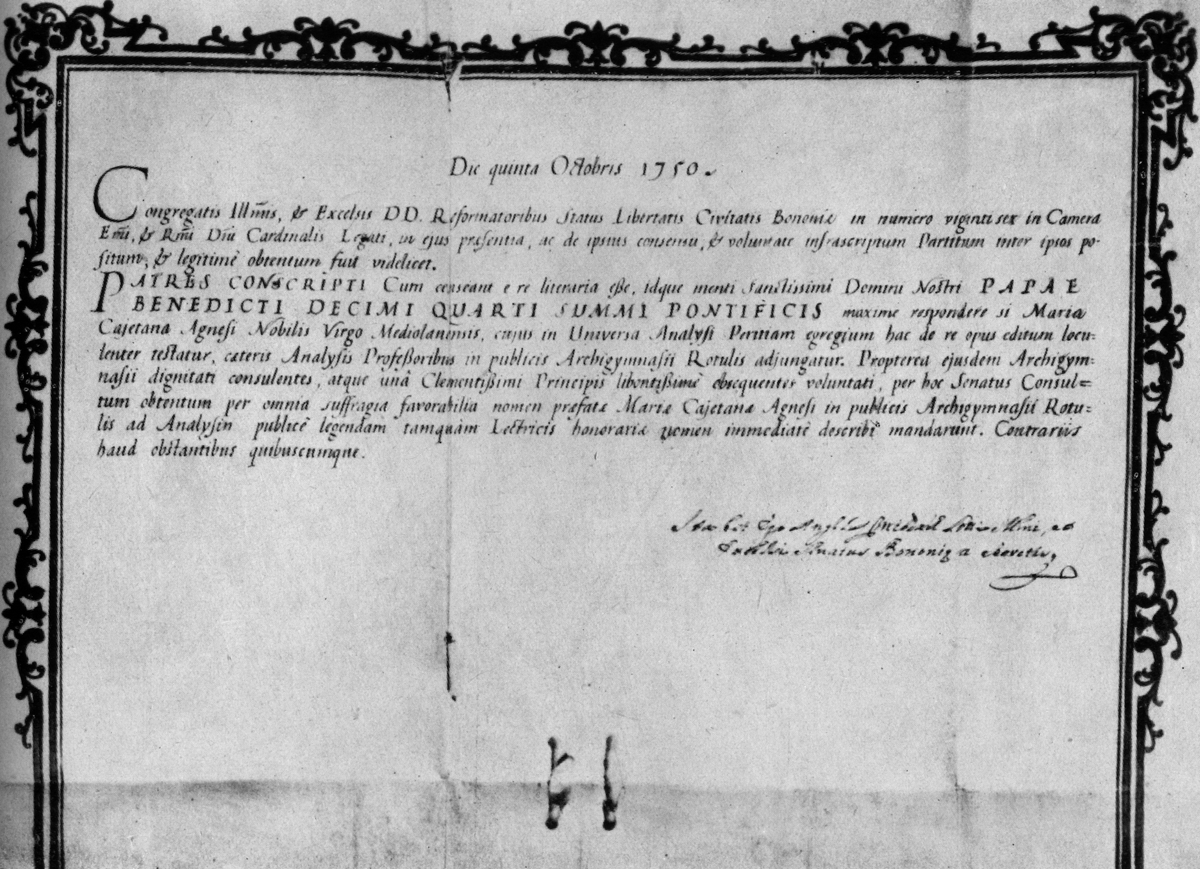 Die quinta Octobris 1750.
Congregatis Illm̃is, & Excelsis DD. Reformatoribus Status Libertatis Civitatis Bononiæ in numero viginti sex in Camera
Em̃i, & Rm̃i Dñi Cardinalis Legati, in ejus præsentia, ac de ipsius consensu, & voluntate infrascriptum Partitum inter ipsos po-
situm, & legitimè obtentum fuit videlicet.
PATRES CONSCRIPTI Cum censeant e re literaria esse, idque menti Sanctissimi Domini Nostri PAPAE
BENEDICTI DECIMI QUARTI SUMMI PONTIFICIS maxime respondere si Maria
Cajetana Agnesi Nobilis Virgo Mediolanẽnsis, cujus in Universa Analysi Peritiam egregium hac de re opus editum locu-
lenter testatur, cæteris Analysis Professoribus in publicis Archigymnasii Rotulis adjungatur. Propterea ejusdem Archigym=
nasii dignitati consulentes, atque unà Clementissimi Principis libentissime obsequentes voluntati, per hoc Senatus Consul=
tum obtentum per omnia suffragia favorabilia nomen præfatæ Mariæ Cajetanæ Agnesi in publicis Archigymnasii Rotu-
lis ad Analysin publicè legendam tamquàm Lectricis honorariæ nomen immediatè describi mandarunt. Contrariis
haud obstantibus quibuscumque.
Senatus Bononiæ a Secretis